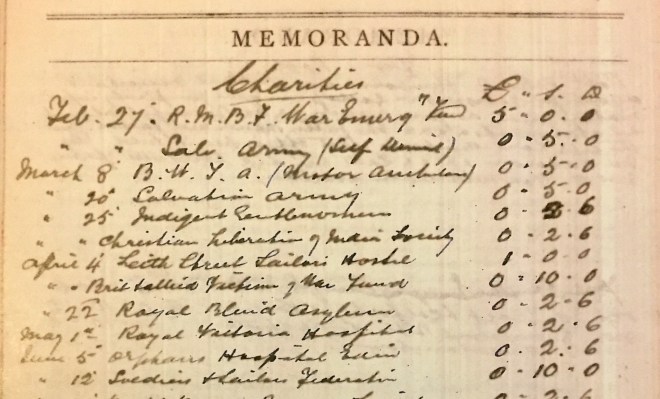 MEMORANDA.
Charities £ " S. D
Feb. 27. R. M. B. F. War Emerg" Fund 5 - 0 - 0
" " Salv. Army (Self Denial) 0 - 5 - 0
March 8 B. W. T. A. (Motor Ambulance) 0 - 5 - 0
" 20 Salvation Army 0 - 5 - 0
" 25 Indigent Gentlewomen 0 - 2 - 6
" " Christian of Society 0 - 2 - 6
April 4 Leith Street Sailors Hostel 1 - 0 - 0
" " Brit & Allied Victims of War Fund 0 - 10 - 0
" 22 Royal Blind Asylum 0 - 2 - 6
May 1st Royal Victoria Hospital 0 - 2 - 6
June 5 Orphans Hospital Edin 0 - 2 - 6
" 12 Soldiers & Sailors Federation 0 - 10 - 0
0 - 2 - 6